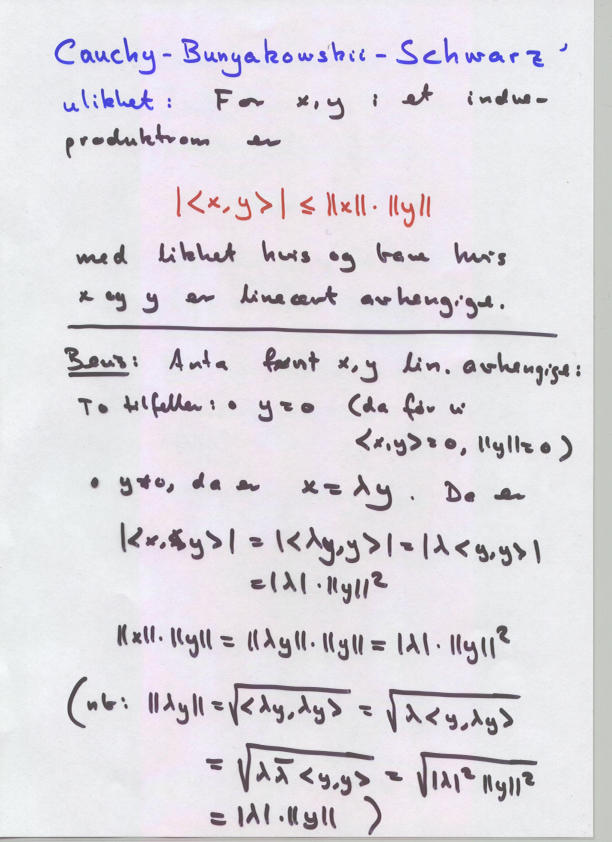 Cauchy-Bunyakowskii-Schwarz'
ulikhet: For x,y i et indre-
produktrom er
|<x,y>| ≤ ||x||·||y||
med likhet hvis og bare hvis
x og y er lineært avhengige.
Bevis: Anta først x,y lin. avhengige:
To tilfeller: • y=0 (da får vi
<x,y>=0, ||y||=0)
• y≠0, da er x=λy. Da er
|<x,y>| = |<λy,y>| = |λ<y,y>|
=|λ|·||y||²
||x||·||y|| = ||λy||·||y|| = |λ|·||y||²
(nb: ||λy|| = √<λy,λy> = √λ<y,λy>
= √λλ̄<y,y> = √|λ|²||y||²
= |λ|·||y|| )